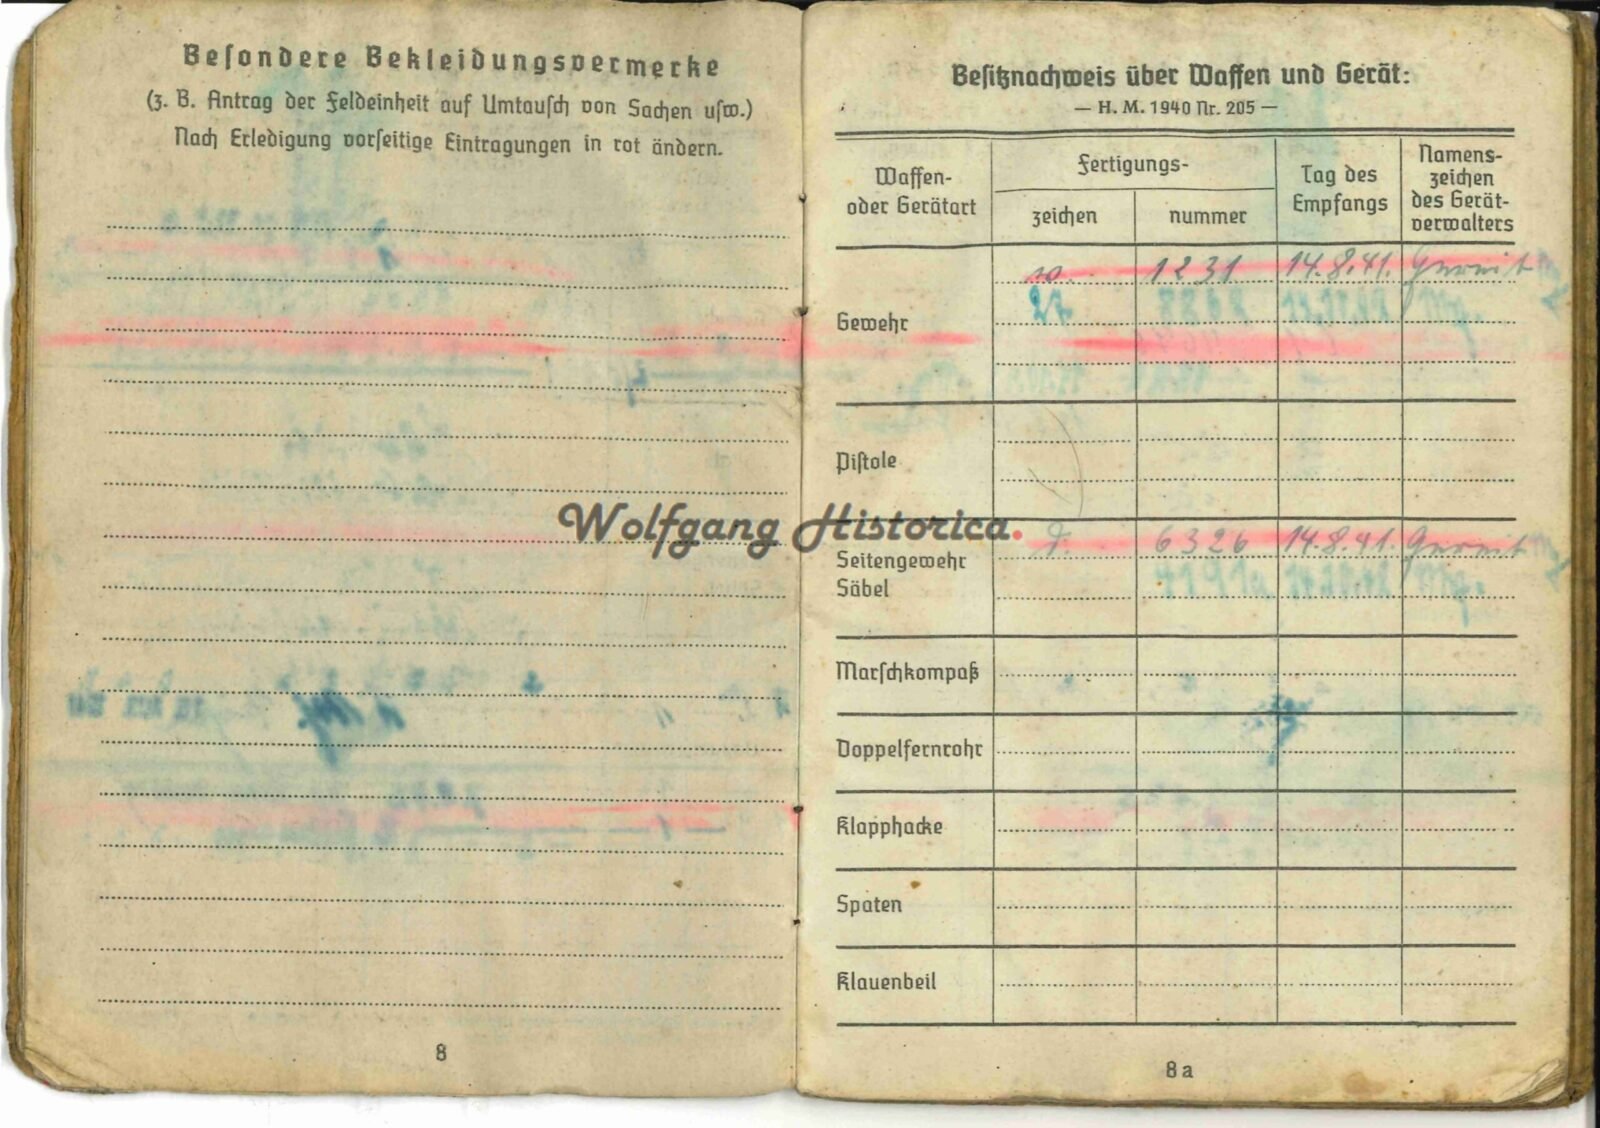 Besondere Bekleidungsvermerke
(z. B. Antrag der Feldeinheit auf Umtausch von Sachen usw.)
Nach Erledigung vorseitige Eintragungen in rot ändern.
8
Wolfgang Historica.
Besitznachweis über Waffen und Gerät:
— H. M. 1940 Nr. 205 —
Waffen-
oder Gerätart
Fertigungs-
zeichen
nummer
Tag des
Empfangs
Namens-
zeichen
des Gerät-
verwalters
w. 1231 14.8.41.
Gewehr
27
Pistole
6326 14.8.41.
Seitengewehr
Säbel
Marschkompaß
Doppelfernrohr
Klapphacke
Spaten
Klauenbeil
8a